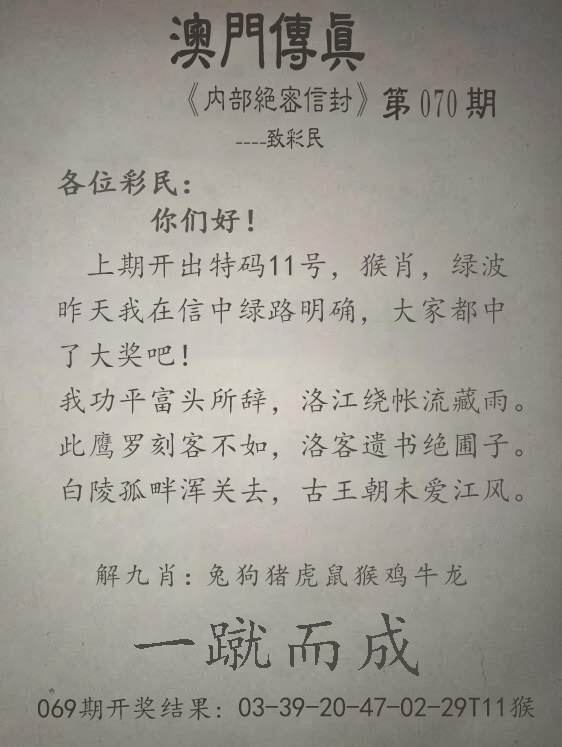 澳門傳眞
《内部絕密信封》第070期
----致彩民
各位彩民：
你们好！
上期开出特码11号，猴肖，绿波
昨天我在信中绿路明确，大家都中
了大奖吧！
我功平富头所辞，洛江绕帐流藏雨。
此鹰罗刻客不如，洛客遗书绝圃子。
白陵孤畔浑关去，古王朝未爱江风。
解九肖：兔狗猪虎鼠猴鸡牛龙
一蹴而成
069期开奖结果：03-39-20-47-02-29T11猴